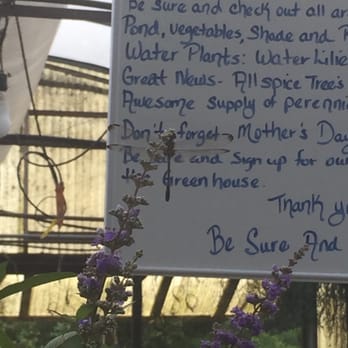 Be sure and check out all ar
Pond, vegetables, Shade and
Water Plants: Water Lilie
Great News- Allspice Trees
Awesome supply of perenni
Don't forget Mother's Day
and sign up for our
Greenhouse.
Thank yo
Be Sure And